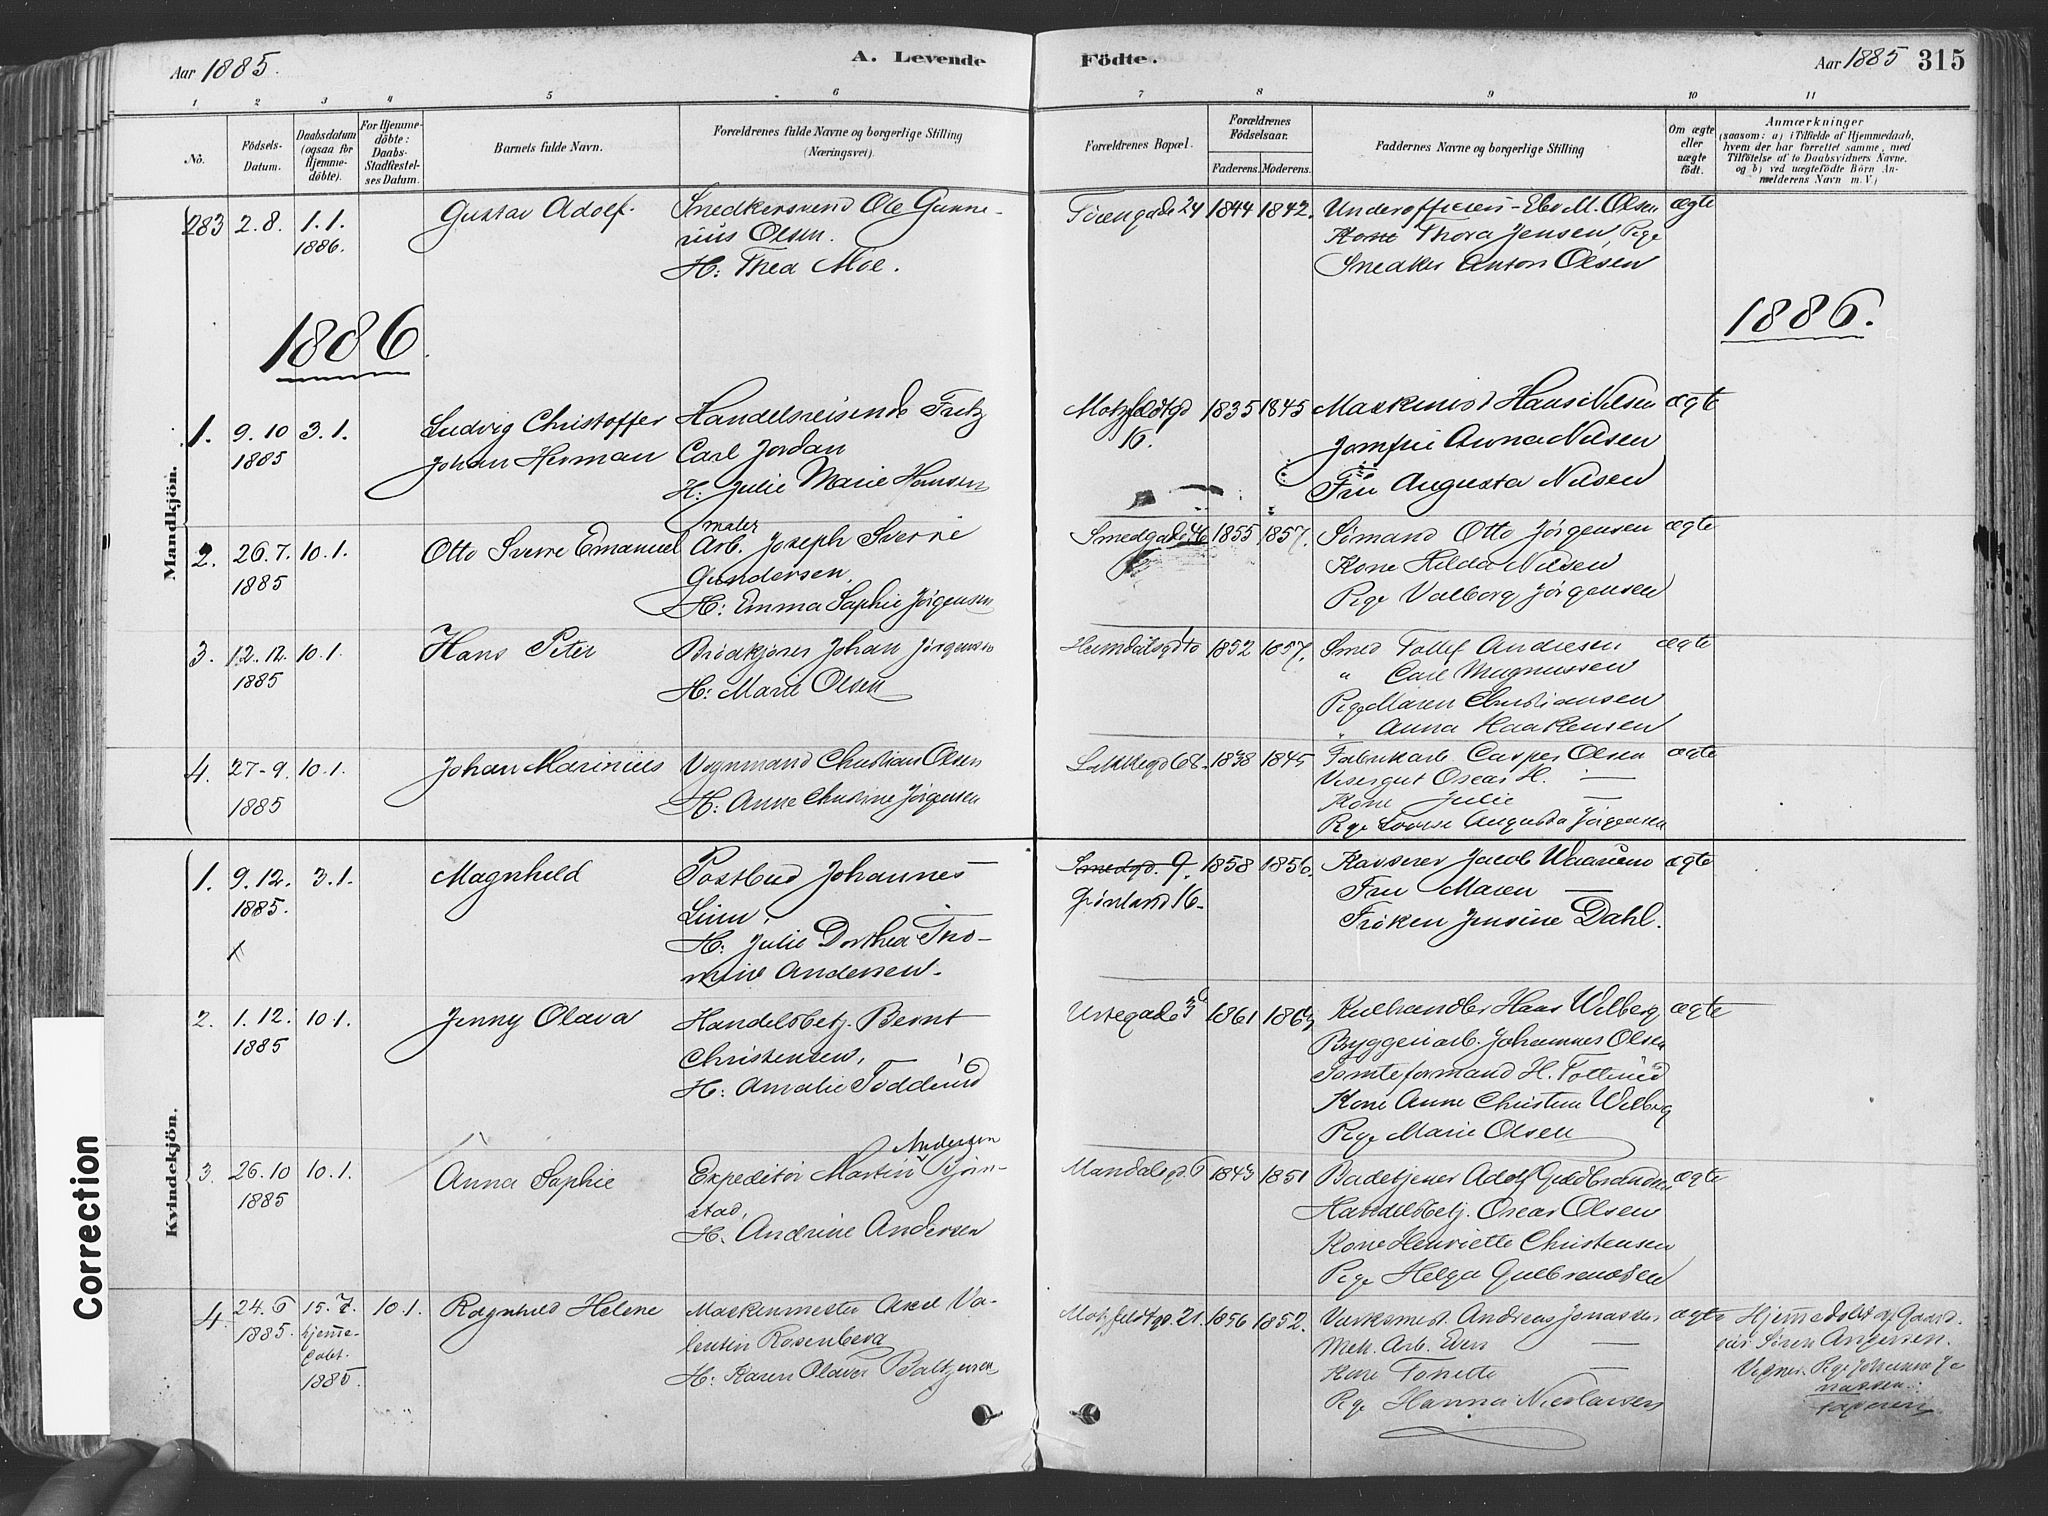 Aar 1885.
A. Levende
Födte.
Aar 1885 315
1 2 3 4 5 6 7 8 9 10 11
No.
Födsels-Datum.
Daabsdatum (ogsaa for Hjemme-döbte).
For Hjemme-döbte: Daabs-Stadfæstel-ses Datum.
Barnets fulde Navn.
Forældrenes fulde Navne og borgerlige Stilling
(Næringsvei).
Forældrenes Bopæl.
Forældrenes Födselsaar.
Faderens. Moderens.
Faddernes Navne og borgerlige Stilling
Om ægte eller uægte födt.
Anmærkninger
(saasom: a) i Tilfælde af Hjemmedaab,
hvem der har forrettet samme, med
Tilföielse af to Daabsvidners Navne.
og b) ved uægtefödte Börn An-
melderens Navn m. V.)
283 2.8. 1.1. Gustav Adolf. Snedkersvend Ole Gunne- 24 1844 1842. Underofficers-Elev M. Olsen ægte
1886. rius Olsen. Kone Thora Jensen, Pige
H: Thea Moe. Snedker Anton Olsen
1886.
1886.
Mandkjön.
1. 9.10 3.1. Ludvig Christoffer Handelsreisende Fritz Motzfeldtgd 1835 1845 Maskinist Hans Nilsen ægte
1885 Johan Herman Carl Jordan 16. Jomfru Anna Nilsen
H: Julie Marie Hansen Fru Augusta Nilsen
maler
2. 26.7. 10.1. Otto Sverre Emanuel Arb. Joseph Sverre Smedgade 46 1855 1857. Sømand Otto Jörgensen ægte
1885 Gundersen. Kone Hilda Nilsen
H: Emma Sophie Jörgensen Pige Valborg Jörgensen
3. 12.12. 10.1. Hans Peter Brødkjører Johan Jørgensen Heimdalsgd 10 1852 1857. Smed Tollef Andresen ægte
1885 H: Marie Olsen " Carl Magnussen
Pige Maren Christiansen
" Anna Haakensen
4. 27-9. 10.1. Johan Marinius Vognmand Christian Olsen Lakkegd 68. 1838 1845 Fabrikarb. Casper Olsen ægte
1885 H: Anne Christine Jørgensen Visergut Oscar H. —
Kone Julie —
Pige Lovise Augusta Jörgensen
Kvindekjön.
1. 9.12. 3.1. Magnhild Postbud Johannes Smedgd. 9. 1858 1856. Kasserer Jacob ægte
1885. Linu, Grönland 16. Fru Maren —
x H: Julie Dorthea Tho- Frøken Jensine Dahl.
mine Andersen.
2. 1.12. 10.1. Jenny Olava Handelsbetj. Bernt Urtegade 1861 Kulhandler Hans Wilberg ægte
1885 Christensen, Bryggeriarb. Johannes Olsen
H: Amalie Toddrud Tomteformand H. Tollerud
Kone Anne Christine Wilberg
Pige Marie Olsen
Andersen
3. 26.10 10.1. Anna Sophie Expeditör Martin Bjørn- Mandalsgd. 6 1843 1851 Badetjener Adolf Guldbrandsen ægte
1885 stad, Handelsbetj. Oscar Olsen
H. Andrine Andersen Kone Henriette Christensen
Pige Helga Gulbrandsen
4. 24.6 15.7. 10.1. Ragnhild Helene Maskinmester Axel Va- Motzfeldtgd. 21. 1856 1852. Værksmest. Andreas Jonassen ægte Hjemmedöbt af Gaard-
1885. hjemme- lentin Rosenberg Mek. Arb. — eier Søren Angersen.
döbt. H: Karen Olava Baltzersen Kone Tonette Vidner: Pige Johanne Jo-
1885. Pige Hanna Nicolaisen nassen.
Correction